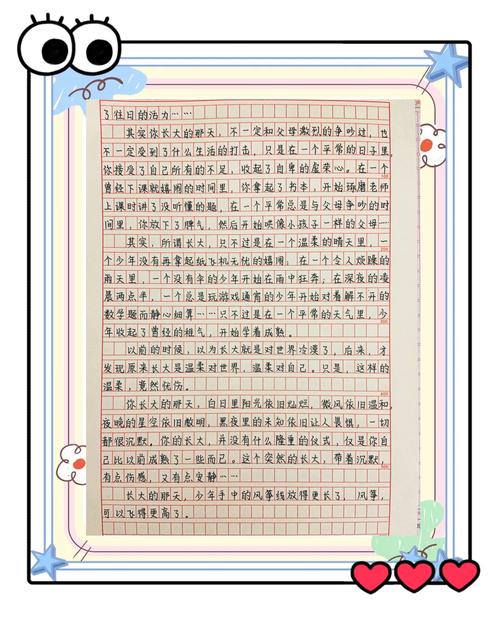 了往日的活力……
其实你长大的那天，不一定和父母激烈的争吵过，也
不一定受到了什么生活的打击，只是在一个平常的日子里，
你接受了自己所有的不足，收起了自卑的虚荣心。在一个
曾经下课就嬉闹的时间里，你拿起了书本，开始琢磨老师
上课时讲了没听懂的题，在一个平常总是与父母争吵的时
间里，你放下了脾气，然后开始哄像小孩子一样的父母…
其实，所谓长大，只不过是在一个温柔的晴天里，一
个少年没有再拿起纸飞机无忧的嬉闹；在一个令人烦躁的
雨天里，一个没有伞的少年开始在雨中狂奔；在深夜的凌
晨两点半，一个总是玩游戏通宵的少年开始对着解不开的
数学题而静心细算……只不过是在一个平常的天气里，少
年收起了曾经的稚气，开始学着成熟。
以前的时候，以为长大就是对世界冷漠了，后来，才
发现原来长大是温柔对世界，温柔对自己。只是，这样的
温柔，竟然忧伤。
你长大的那天，白日里阳光依旧灿烂，微风依旧温和，
夜晚的星空依旧散明，黑夜里的未知依旧让人畏惧，一切
都很沉默。你的长大，并没有什么隆重的仪式，仅是你自
己比以前成熟了一些而已。这个突然的长大，带着沉默，
有点伤感，又有点安静……
长大的那天，少年手中的风筝线放得更长了，风筝，
可以飞得更高了。